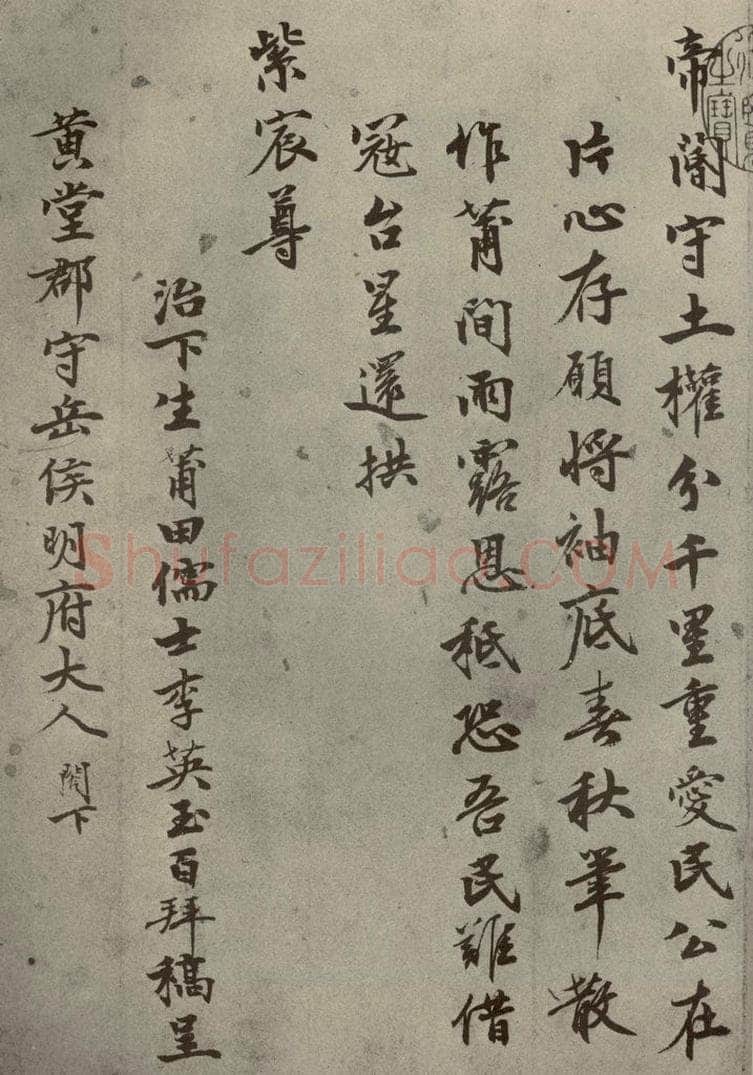 帝閽守土權分千里重愛民公在
片心存願將袖底春秋筆散
作莆間雨露恩秪恐吾民難借
寇台星還拱
紫宸尊
治下生莆田儒士李英玉百拜稿呈
黃堂郡守岳侯明府大人 閤下
Shufaziliao.COM